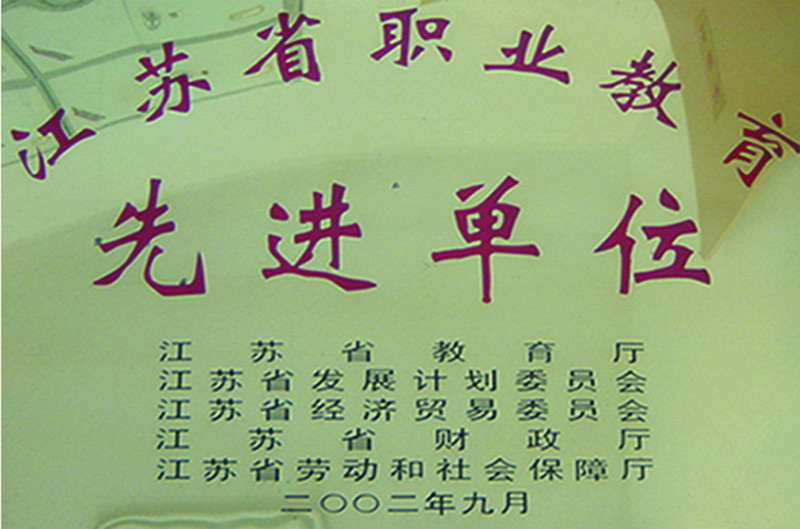 江苏省职业教育
先进单位
江苏省教育厅
江苏省发展计划委员会
江苏省经济贸易委员会
江苏省财政厅
江苏省劳动和社会保障厅
二〇〇二年九月